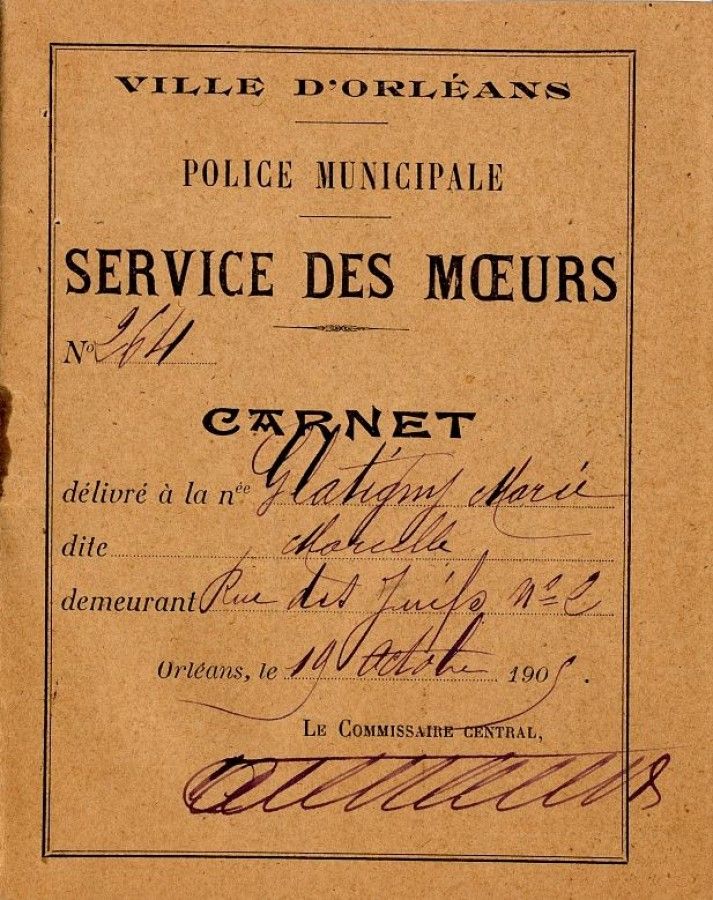 VILLE D'ORLÉANS
POLICE MUNICIPALE
SERVICE DES MŒURS
Nº 264
CARNET
délivré à la née Glatigny Marie
dite Marcelle
demeurant Rue des Juifs Nº 2
Orléans, le 19 Octobre 1905.
LE COMMISSAIRE CENTRAL,